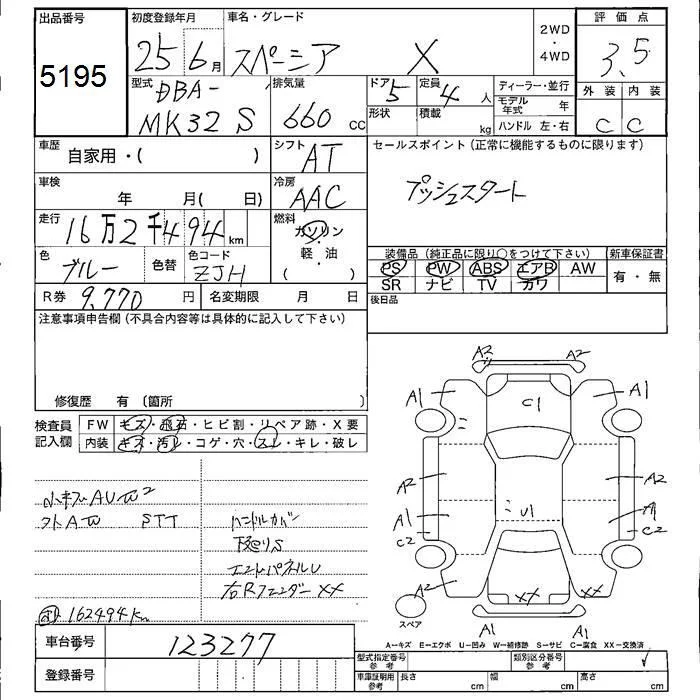 出品番号
5195
初度登録年月
25年6月
車名・グレード
スペーシア X
2WD
・
4WD
評価点
3.5
外装 内装
C C
型式
DBA-
MK32S
排気量
660 cc
ドア
5
定員
4人
形状
積載
kg
ディーラー・並行
モデル年式 年
ハンドル 左・右
車歴
自家用・( )
シフト
AT
セールスポイント(正常に機能するものに限ります)
プッシュスタート
車検
年 月( 日)
冷房
AAC
走行
16万2千494km
燃料
ガソリン
・
軽・油
( )
色
ブルー
色替
色コード
ZJH
装備品(純正品に限り○をつけて下さい)
PS PW ABS エアB AW
SR ナビ TV カワ
新車保証書
有・無
R券 9,770円
名変期限 月 日
後日品
注意事項申告欄(不具合内容等は具体的に記入して下さい)
修復歴 有(箇所 )
検査員記入欄
FW キズ・飛石・ヒビ割・リペア跡・X要
内装 キズ・汚レ・コゲ・穴・スレ・キレ・破レ
小キズAUW2
フトAW STT
ハンドルカバー
下廻りS
エンドパネルU
右Rフェンダー XX
162494km
A2 A2
A1 A1
C1
A2 A2
A1 U1 A1
C2 C2
A2 XX XX
スペア
A1 A1
A-キズ E-エクボ U-凹み W-補修跡 S-サビ C-腐食 XX-交換済
車台番号
123277
登録番号
型式指定番号
参考
類別区分番号
参考
車庫証明用
参考
長さ cm
幅 cm
高さ cm